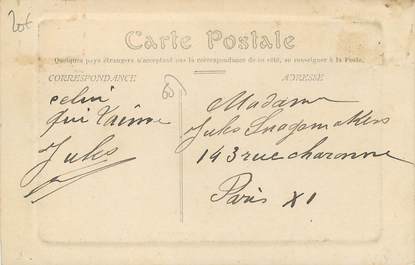 20€
Carte Postale
Quelques pays étrangers n'acceptant pas la correspondance de ce côté, se renseigner à la Poste.
CORRESPONDANCE
ADRESSE
celui
qui t'aime
Jules
Madame
Jules
143 rue charonne
Paris XI